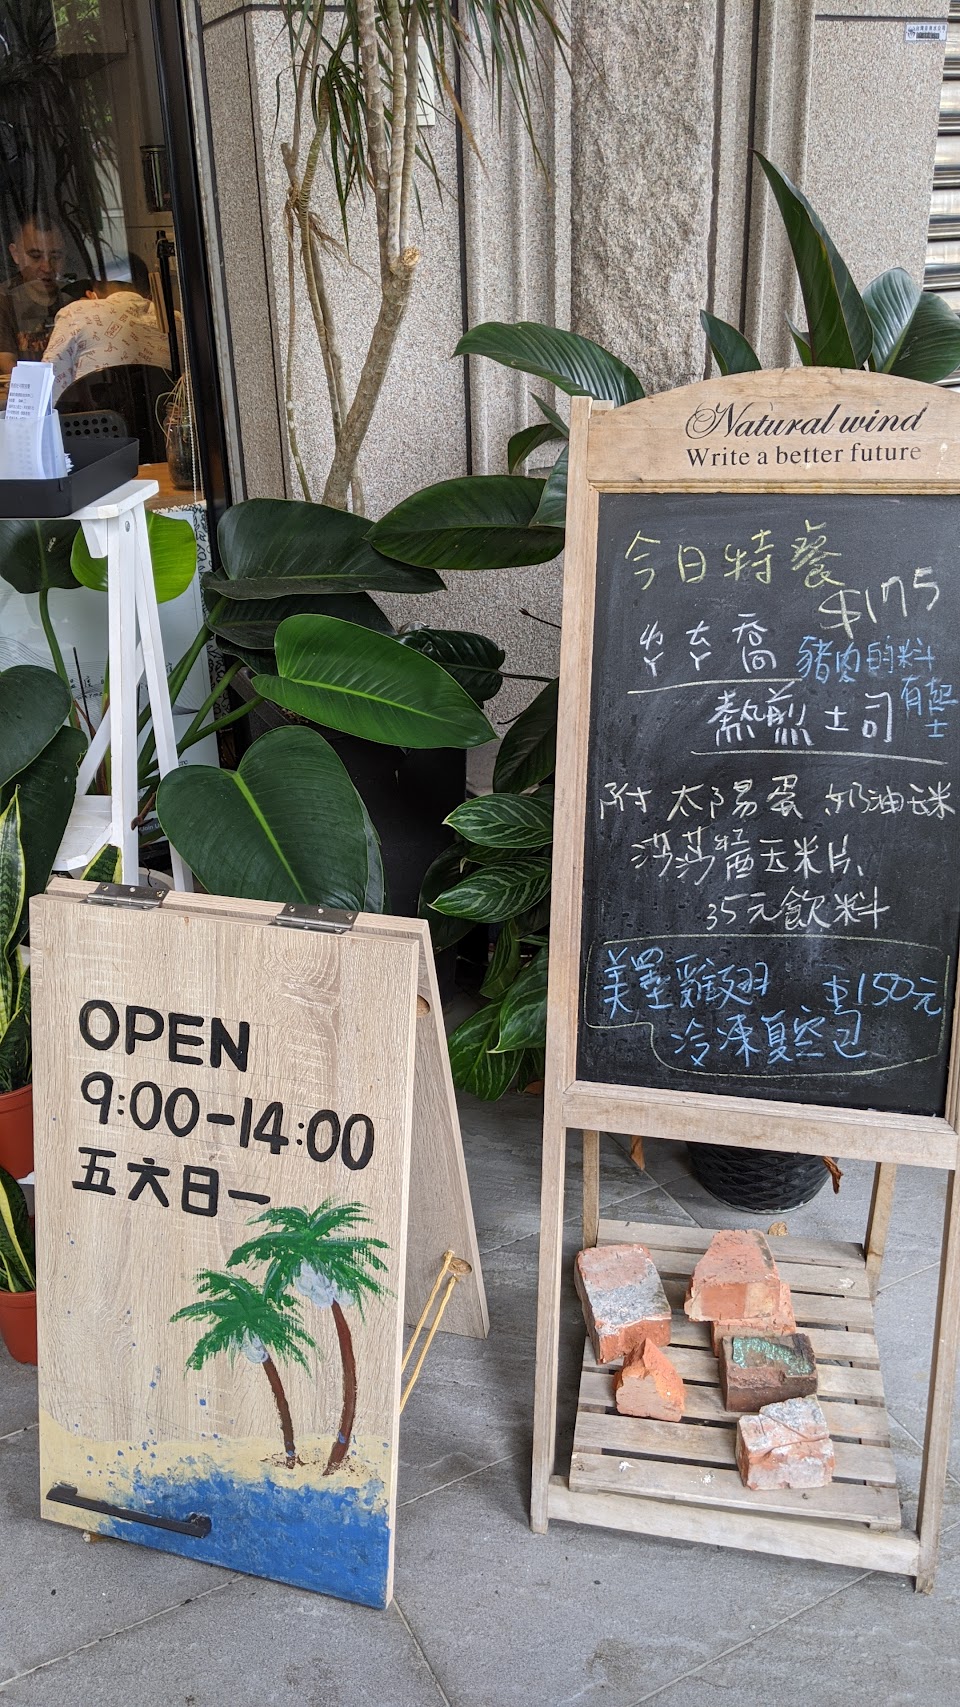 Natural wind
Write a better future
今日特餐
$175
喬 豬肉的料
有起士
熱煎土司
附 太陽蛋 奶油玉米
莎莎醬玉米片、
35元飲料
美墨雞翅 $150元
冷凍真空包
OPEN
9:00-14:00
五六日一